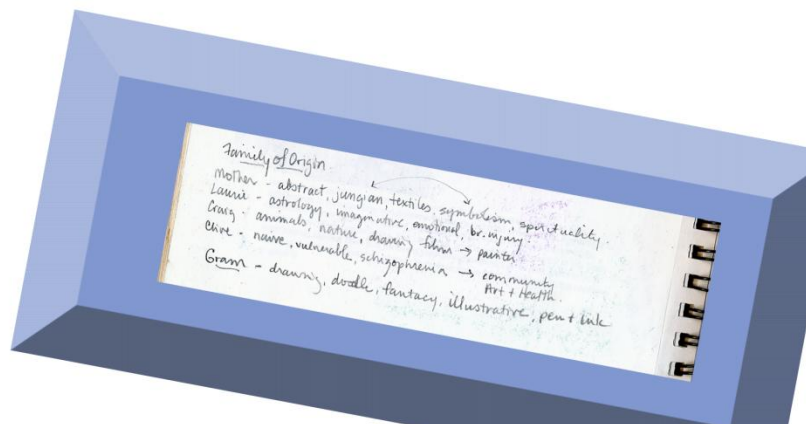 Family of Origin
Mother - abstract, jungian, textiles, symbolism, spirituality.
Laurie - astrology, imaginative, emotional br. injury.
Craig - animals, nature, drawing films → painter
Clive - naive, vulnerable, schizophrenia → community
Art + Health.
Gram - drawing, doodle, fantacy, illustrative, pen + ink